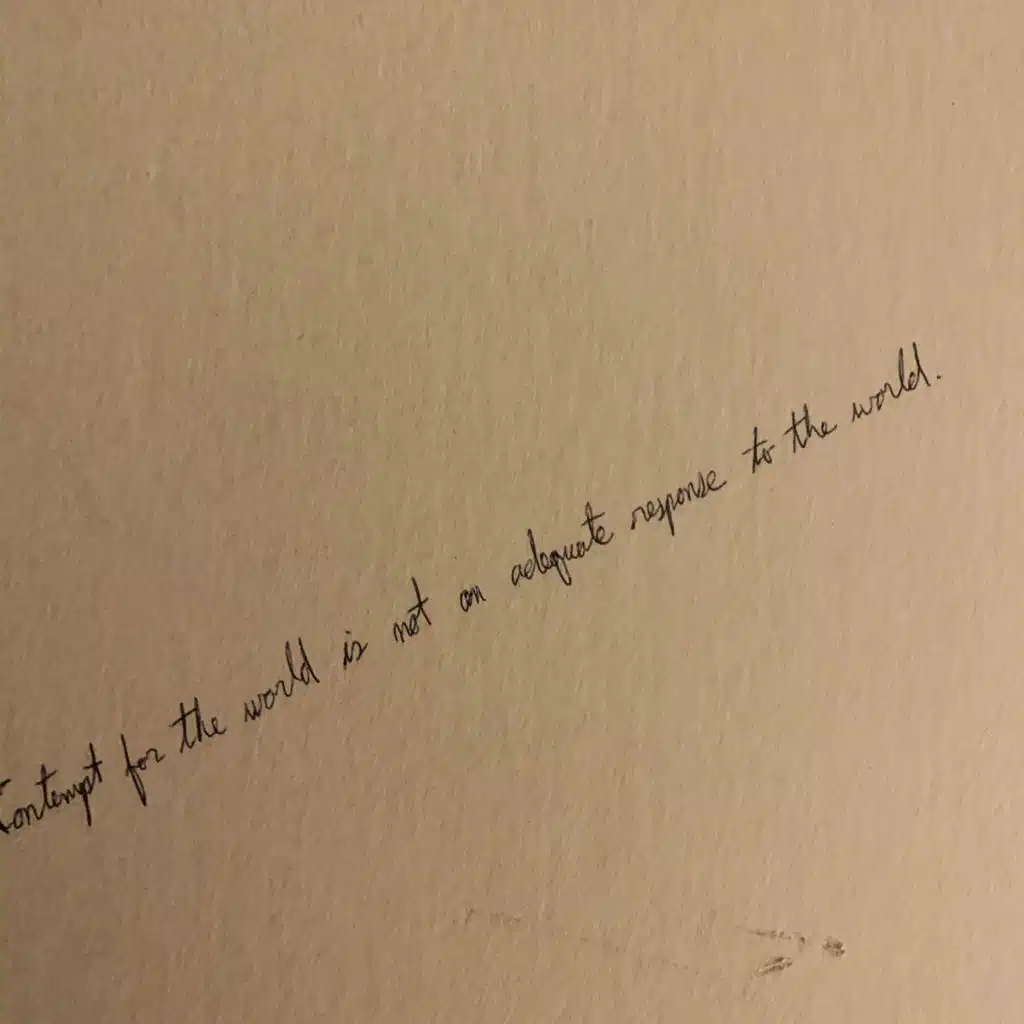 Contempt for the world is not an adequate response to the world.